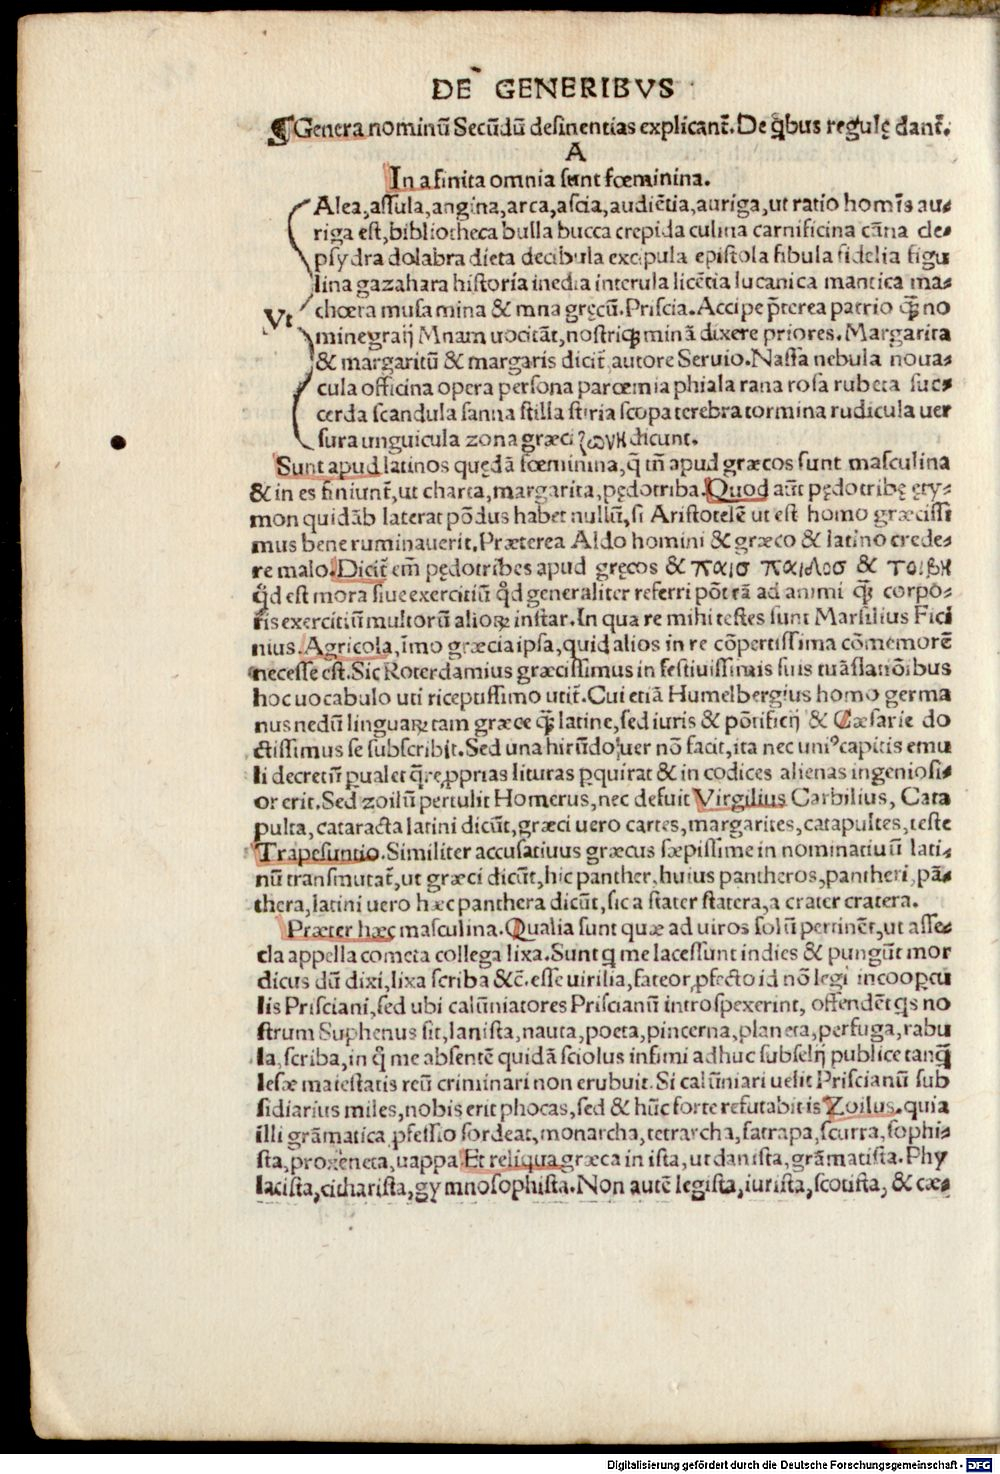 DE GENERIBVS
¶Genera nominū Secūdū desinentias explicant᷑. De qbus regulę dant᷑.
A
In a finita omnia sunt fœminina.
Alea, assula, angina, arca, ascia, audiētia, auriga, ut ratio homīs au-
riga est, bibliotheca bulla bucca crepida culina carnificina cāna cle-
psydra dolabra dieta decibula excipula epistola fibula fidelia figu
lina gazahara historia inedia interula licētia lucanica mantica ma-
Vt chœra musa mina & mna gręcū. Priscia. Accipe p̄terea patrio q̄ꝫ no
mine graij Mnam uocitāt, nostriqꝫ minā dixere priores. Margarita
& margaritū & margaris dicit᷑ autore Seruio. Nassa nebula noua-
cula officina opera persona parœmia phiala rana rosa rubeta suc-
cerda scandula sanna stilla stiria scopa terebra tormina rudicula uer
sura unguicula zona græci ζωνη dicunt.
Sunt apud latinos quędā fœminina, q̄ tn̄ apud græcos sunt masculina
& in es finiunt᷑, ut charta, margarita, pędotriba. Quod aūt pędotribę ety-
mon quidāb laterat pōdus habet nullū, si Aristotelē ut est homo græcissi
mus bene ruminauerit. Præterea Aldo homini & græco & latino crede-
re malo. Dicit᷑ em̄ pędotribes apud gręcos & παισ παιδοσ & τοιβη
q̄d est mora siue exercitiū q̄d generaliter referri pōt tā ad animi q̄ꝫ corpo-
ris exercitiū multorū alioꝝ instar. In qua re mihi testes sunt Marsilius Fici
nius. Agricola, īmo græcia ipsa, quid alios in re cōpertissima cōmemorē
necesse est. Sic Roterdamius græcissimus in festiuissimis suis trāslatiōibus
hoc uocabulo uti riceptissimo utit᷑. Cui etiā Humelbergius homo germa
nus nedū linguaꝝ tam græce q̄ꝫ latine, sed iuris & pōtificij & Cæsarie do
ctissimus se subscribit. Sed una hirūdo uer nō facit, ita nec uniꝰ capitis emu
li decretū p̱ualet q̄re, p̱prias lituras p̱quirat & in codices alienas ingeniosi-
or erit. Sed zoilū pertulit Homerus, nec defuit Virgilius Carbilius, Cata
pulta, cataracta latini dicūt, græci uero cartes, margarites, catapultes, teste
Trapesuntio. Similiter accusatiuus græcus sæpissime in nominatiuū lati-
nū transmutat᷑, ut græci dicūt, hic panther, huius pantheros, pantheri, pā-
thera, latini uero hæc panthera dicūt, sic a stater statera, a crater cratera.
Præter hæc masculina. Qualia sunt quæ ad uiros solū pertinēt, ut asse-
cla appella cometa collega lixa. Sunt q me lacessunt indies & pungūt mor
dicus dū dixi, lixa scriba &c̄. esse uirilia, fateor, p̱fecto id nō legi in coop̱cu
lis Prisciani, sed ubi calūniatores Priscianū introspexerint, offendēt qs no
strum Suphenus sit, lanista, nauta, poeta, pincerna, planeta, perfuga, rabu
la, scriba, in q̄ me absentē quidā sciolus infimi adhuc subselij publice tanq̄
lesæ maiestatis reū criminari non erubuit. Si calūniari uelit Priscianū sub
sidiarius miles, nobis erit phocas, sed & hūc forte refutabit is Zoilus. quia
illi grāmatica p̱fessio sordeat, monarcha, tetrarcha, satrapa, scurra, sophi-
sta, proxeneta, uappa. Et reliqua græca in ista, ut danista, grāmatista. Phy
lacista, citharista, gymnosophista. Non autē legista, iurista, scotista, & cæ-
Digitalisierung gefördert durch die Deutsche Forschungsgemeinschaft - DFG